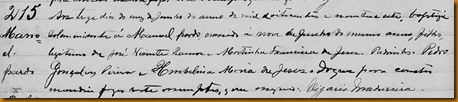 215
Aos treze dias do mez de Junho do anno de mil oitocentos e noventa e sete, baptizei
Mano- solemnemente a Manoel pardo nascido a nove de Junho do mesmo anno, filho
el legitimo de José Vicente Ramos e Martinha Francisca de Jesus. Padrinhos: Pedro
pardo Gonçalves Vieira e Umbelina Maria de Jesus. Do que para constar
mandei fazer este assento, que assigno. Vigario